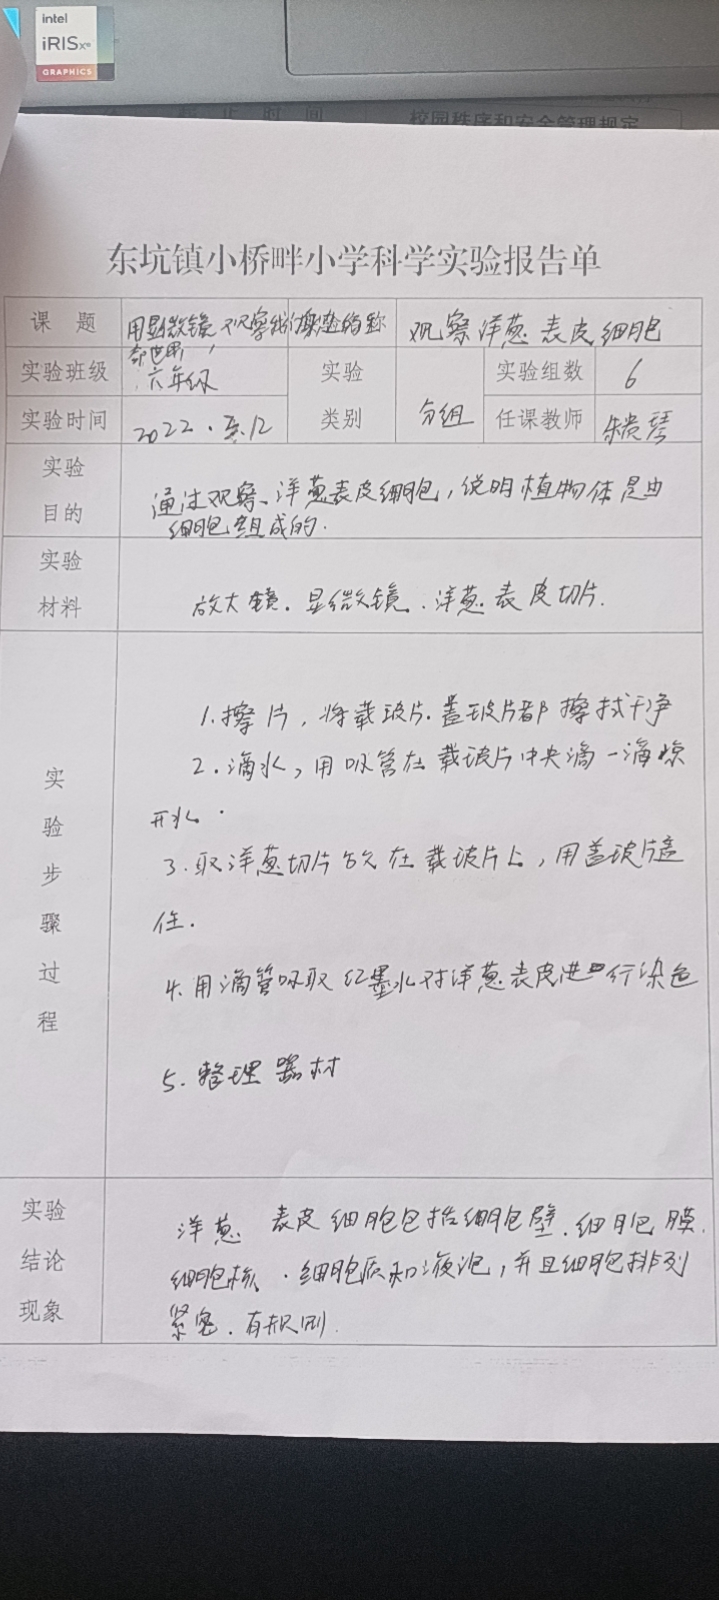 intel
iRISxe
GRAPHICS
校园秩序和安全管理规定
东坑镇小桥畔小学科学实验报告单
课 题
用显微镜观察我们身边的
奇世界
观察洋葱表皮细胞
实验班级
六年级
实验
类别
分组
实验组数
6
实验时间
2022.
12
任课教师
朱贵琴
实验
目的
通过观察、洋葱表皮细胞,说明植物体是由
细胞组成的.
实验
材料
放大镜.显微镜.洋葱表皮切片.
实
验
步
骤
过
程
1.擦片,将载玻片.盖玻片都擦拭干净
2.滴水,用吸管在载玻片中央滴一滴凉
开水.
3.取洋葱切片放在载玻片上,用盖玻片盖
住.
4.用滴管吸取红墨水对洋葱表皮进行染色
5.整理器材
实验
结论
现象
洋葱表皮细胞包括细胞壁.细胞膜.
细胞核.细胞质和液泡,并且细胞排列
紧密.有规则.